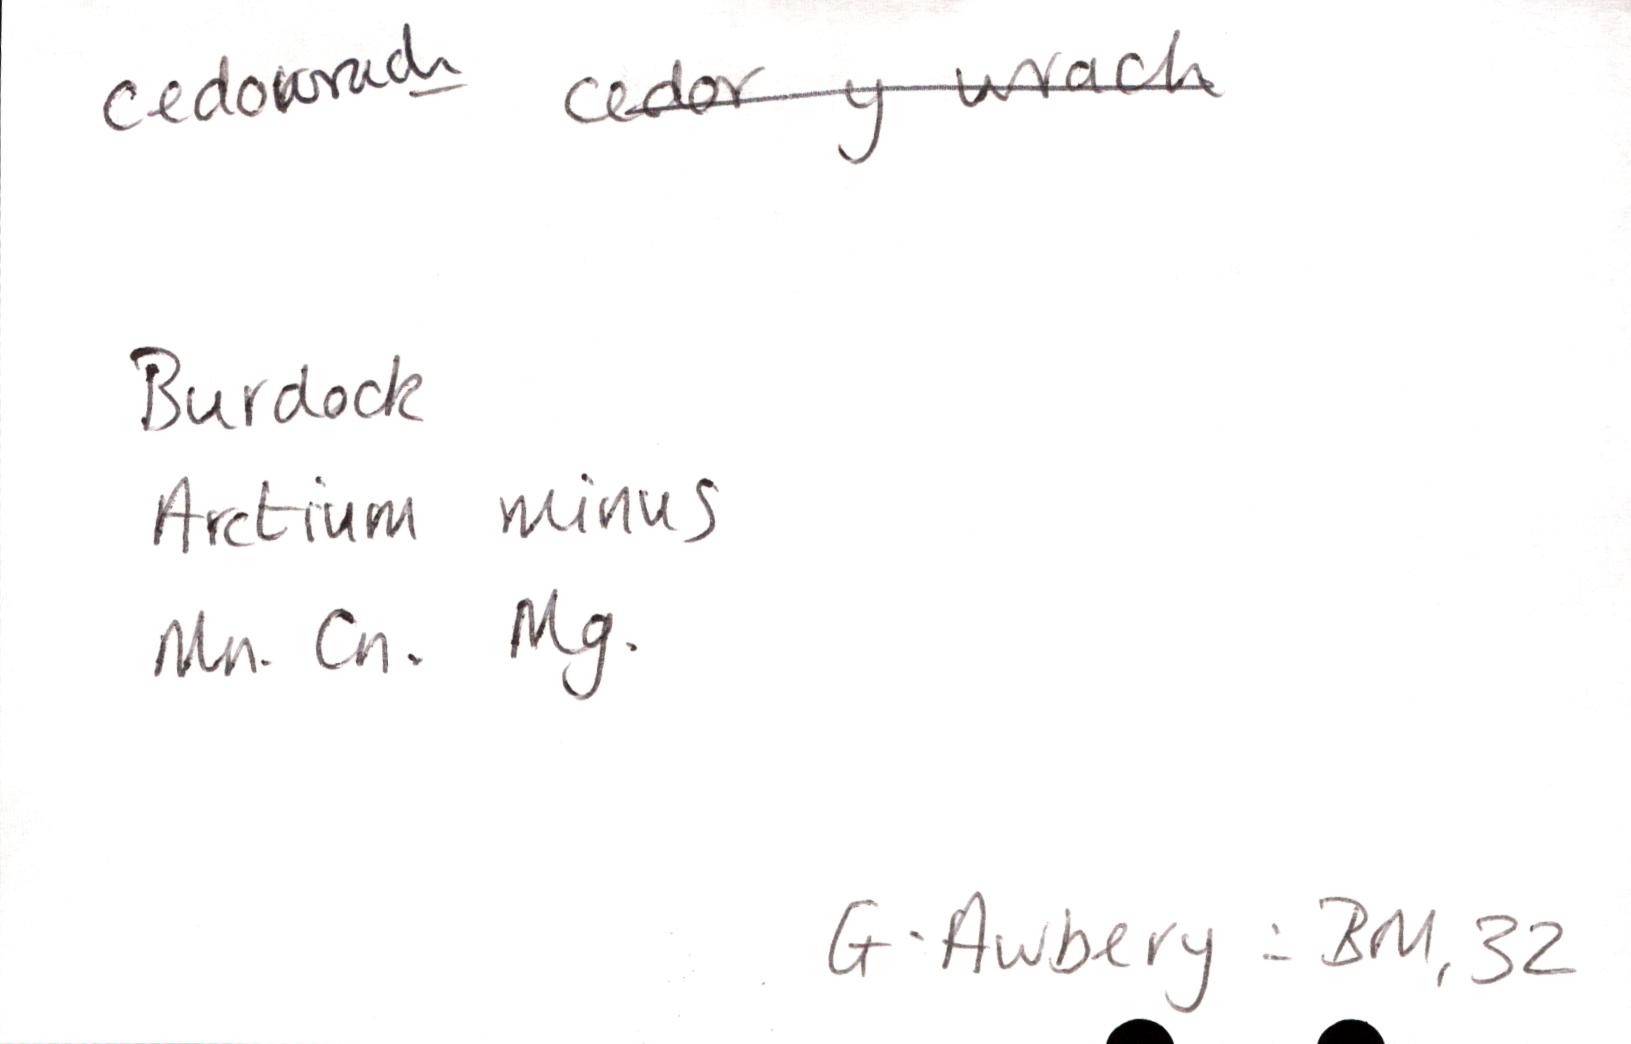 cedowrach ~~cedor y wrach~~
Burdock
Arctium minus
Mn. Cn. Mg.
G. Awbery : BM, 32